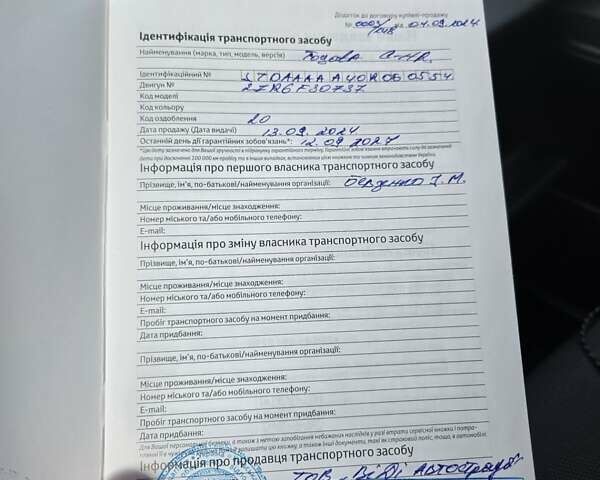 Додаток до договору купівлі-продажу
№ від 04.09.2024
Ідентифікація транспортного засобу
Найменування (марка, тип, модель, версія) Тойота C-HR.
Ідентифікаційний №
Двигун № 2ZR6F30737
Код моделі
Код кольору
Код оздоблення 20
Дата продажу (Дата видачі) 13.09.2024
Останній день дії гарантійних зобов'язань*: 12.09.2027
Інформація про першого власника транспортного засобу
Прізвище, ім'я, по-батькові/найменування організації:
Місце проживання/місце знаходження:
Номер міського та/або мобільного телефону:
E-mail:
Інформація про зміну власника транспортного засобу
Прізвище, ім'я, по-батькові/найменування організації:
Місце проживання/місце знаходження:
Номер міського та/або мобільного телефону:
E-mail:
Пробіг транспортного засобу на момент придбання:
Дата придбання:
Прізвище, ім'я, по-батькові/найменування організації:
Місце проживання/місце знаходження:
Номер міського та/або мобільного телефону:
E-mail:
Пробіг транспортного засобу на момент придбання:
Дата придбання:
Інформація про продавця транспортного засобу
ТОВ „ВіДі Автострада"